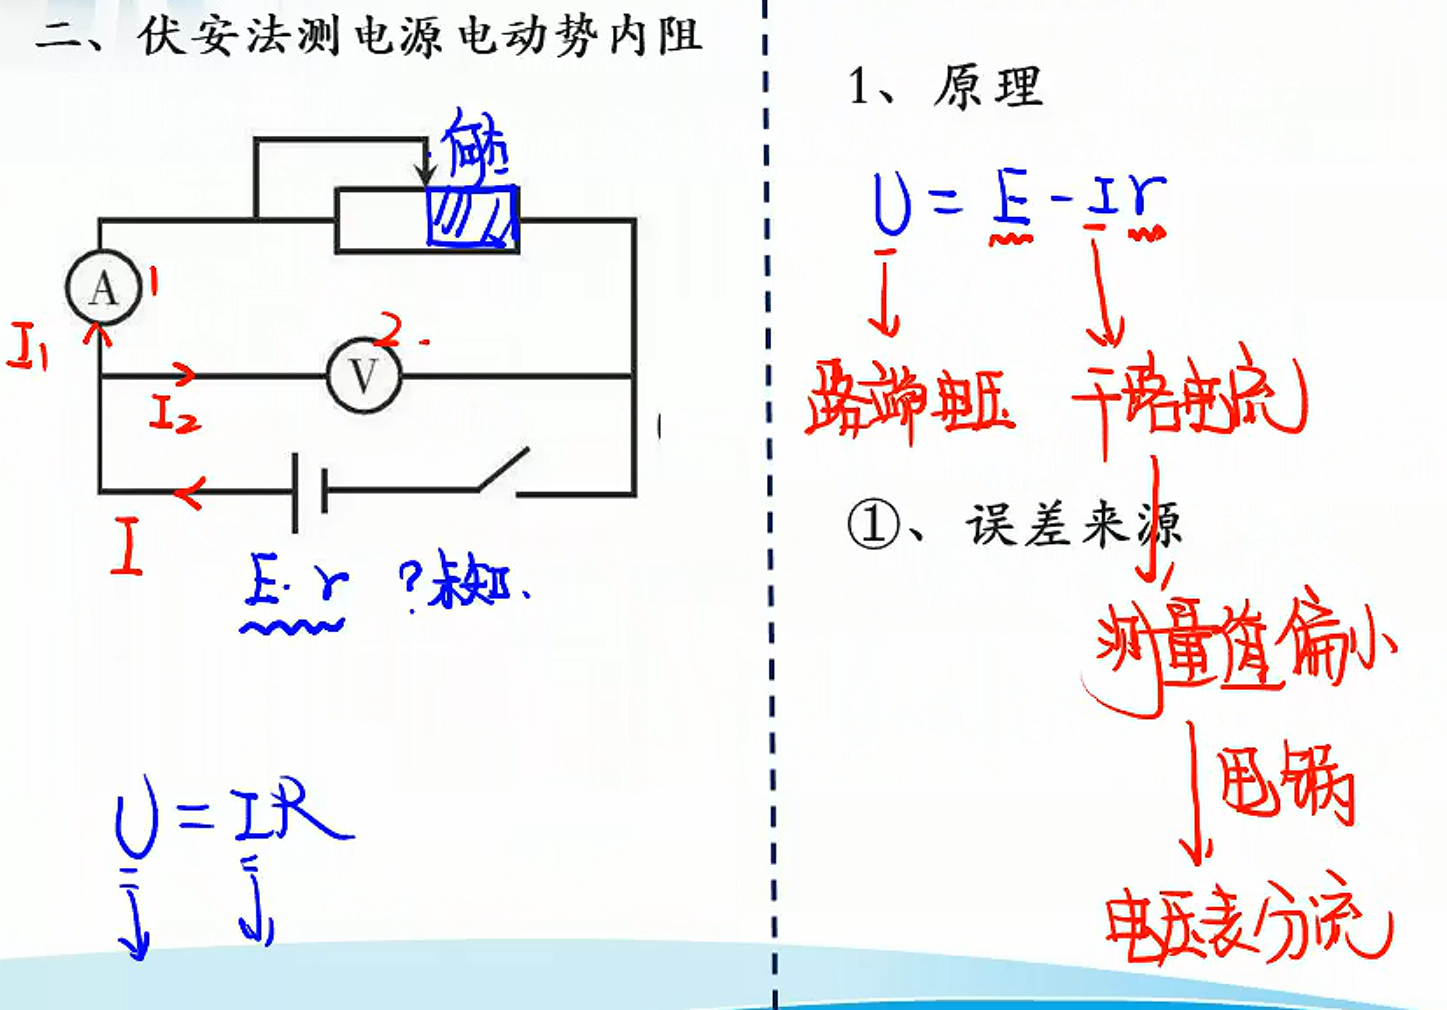 二、伏安法测电源电动势内阻
A 1
I₁
V 2.
I₂
I
E. r ?未知.
U = IR
1、原理
U = E - Ir
路端电压 干路电流
①、误差来源
测量值偏小
甩锅
电压表分流